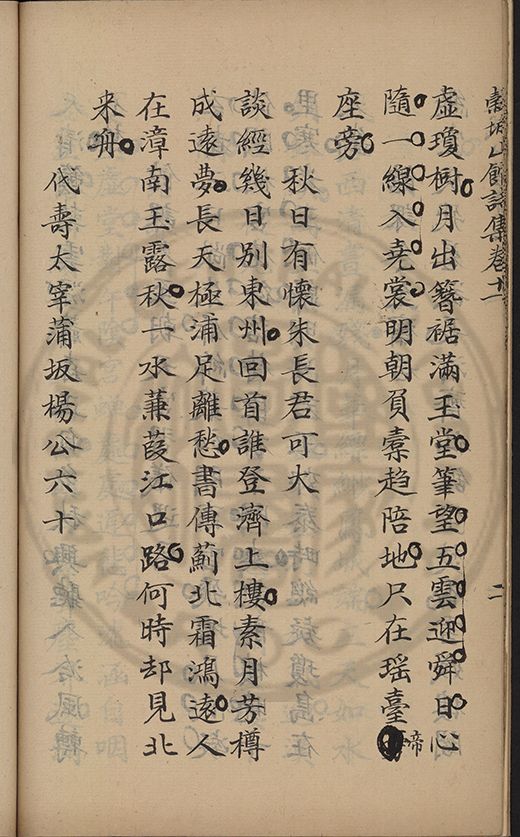 穀城山館詩集卷十一
二
虛瓊樹月出簪裾滿玉堂筆望五雲迎舜日心
隨一線入堯裳明朝負橐趨陪地尺在瑶臺帝
座旁
秋日有懷朱長君可大
談經幾日別東州回首誰登濟上樓素月芳樽
成遠夢長天極浦足離愁書傳薊北霜鴻遠人
在漳南玉露秋一水蒹葭江口路何時却見北
来舟
代壽太宰蒲坂楊公六十